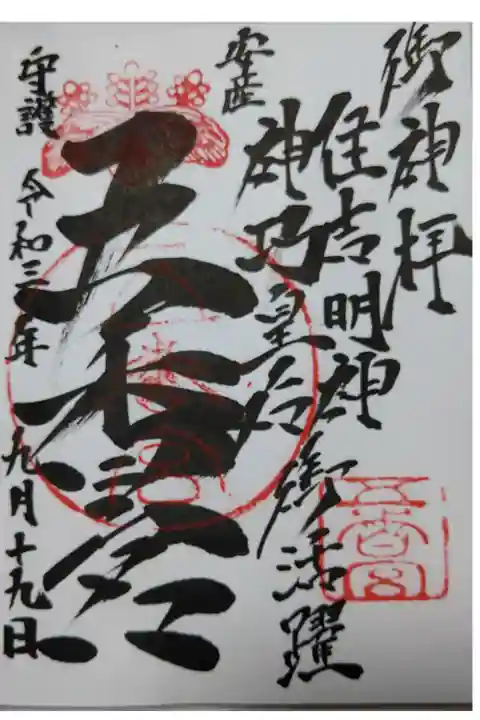 御神拝
住吉明神
神功皇后御活躍
安産
五香宮
守護 令和三年 九月十九日
五香宮